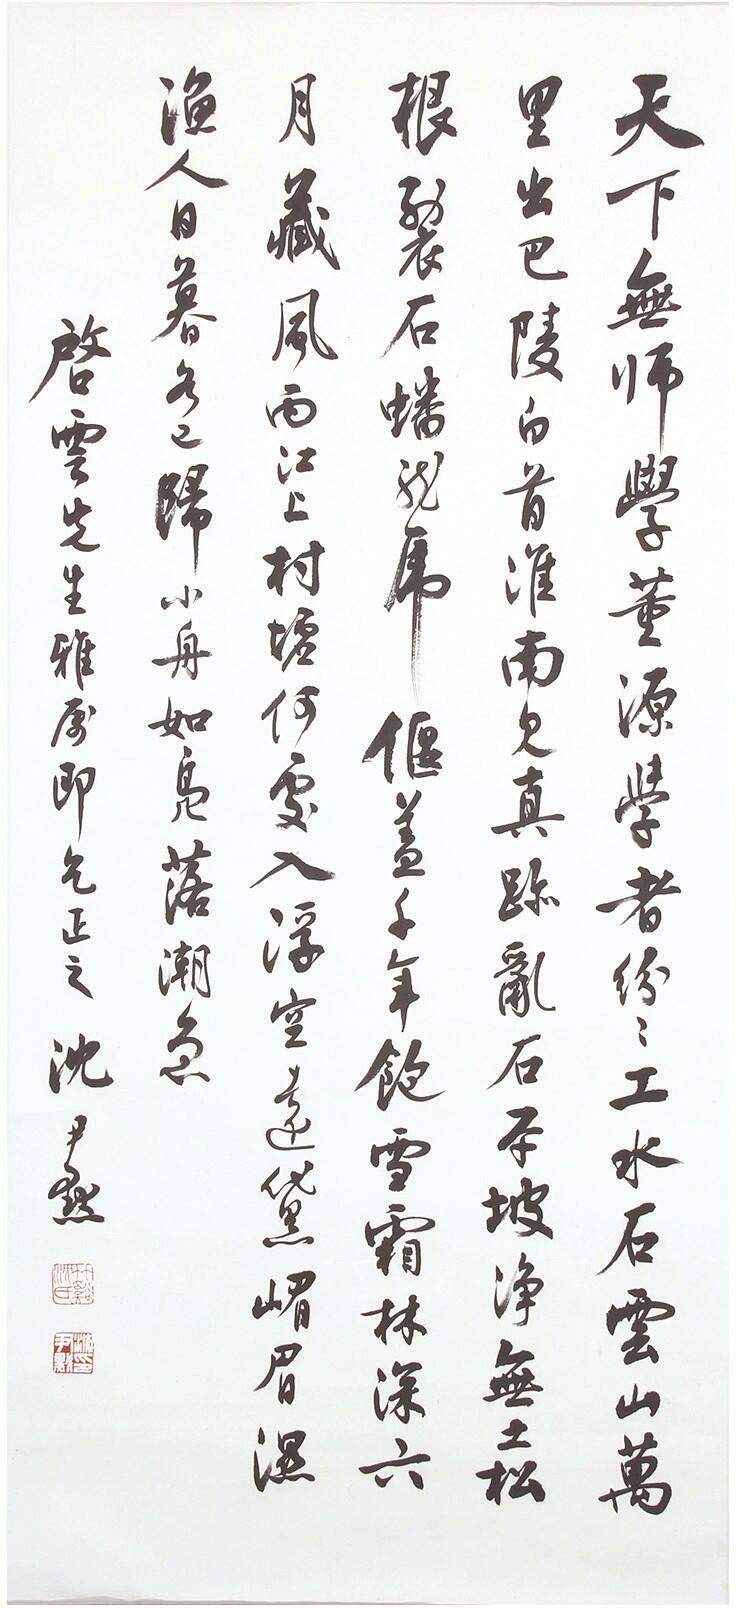 天下無師學董源學者紛〻工水石雲山萬
里出巴陵白首淮南見真跡亂石平坡淨無土松
根裂石蟠龍虎偃蓋千年飽雪霜林深六
月藏風雨江上村墟何處入浮空遠黛嵋眉濕
漁人日暮各已歸小舟如鳧落潮急
啓雲先生雅属即乞正之 沈尹默
竹谿沈氏
沈尹默印